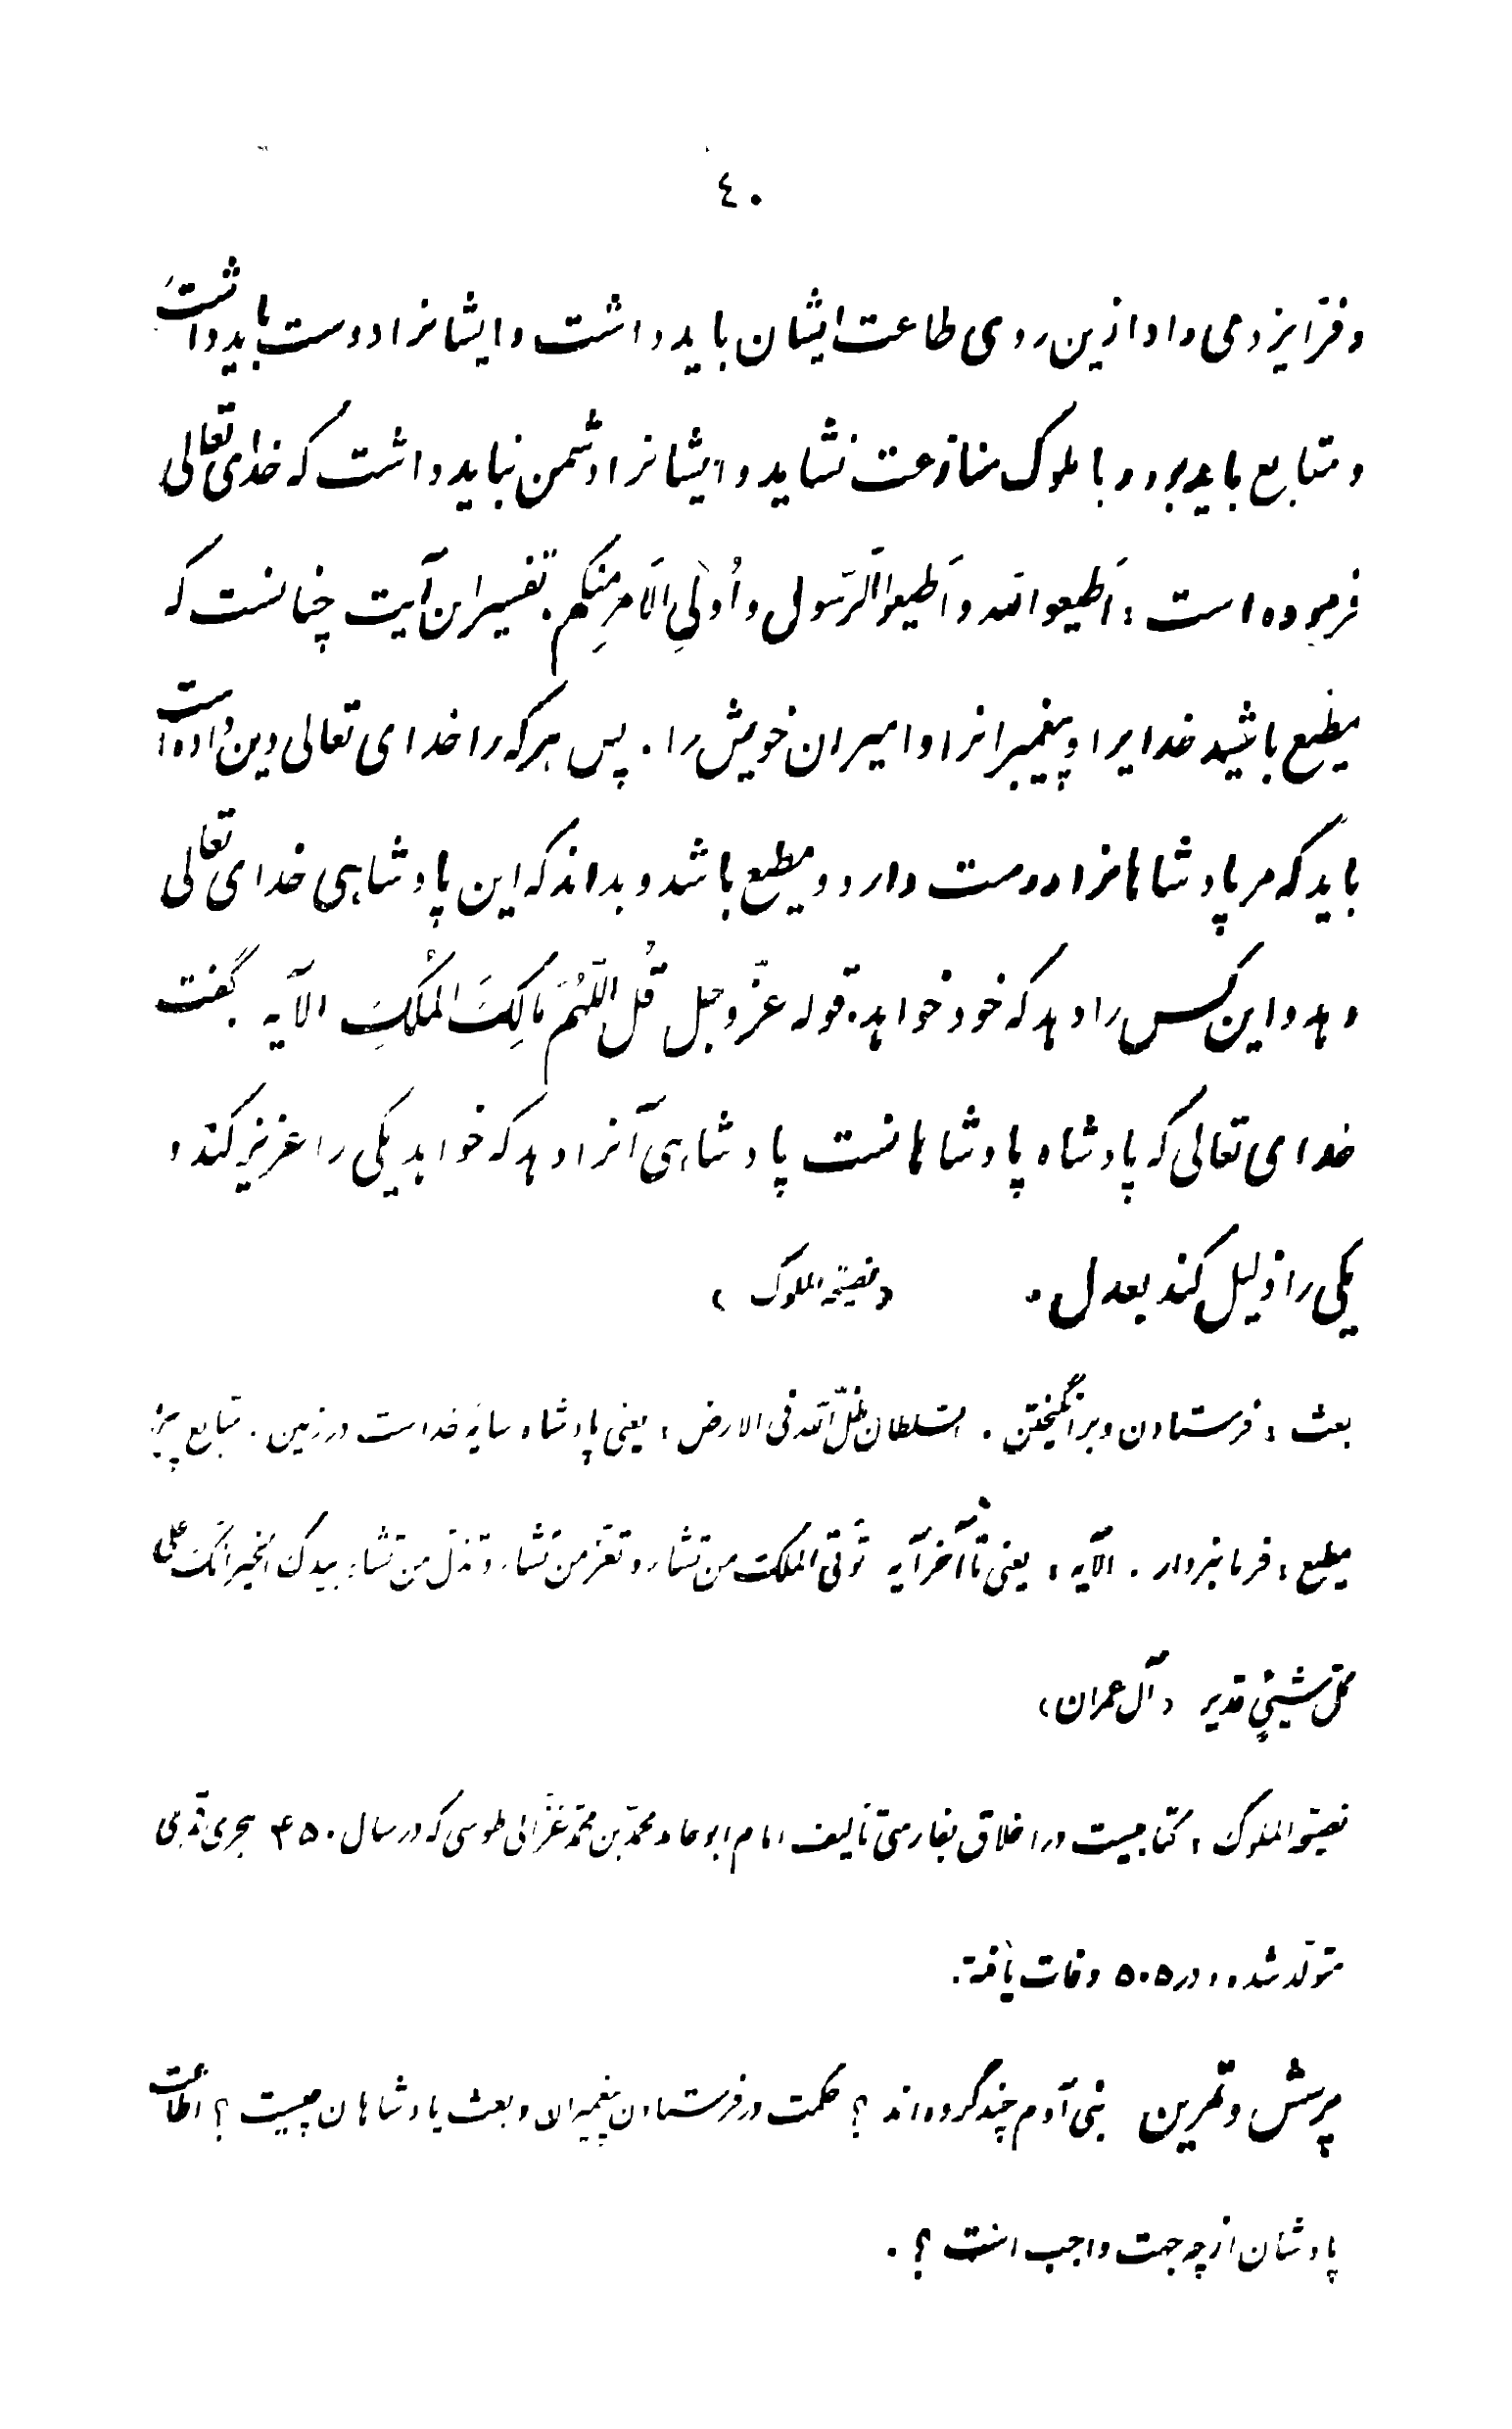 ٤٠
و فرّ ایزدی داد ازین روی طاعت ایشان باید داشت و ایشانرا دوست باید داشت
و متابع باید بود و با ملوک منازعت نشاید و ایشانرا دشمن نباید داشت که خدای تعالی
فرموده است : اَطیعوا الله و اَطیعوا الرّسول و اُولی الاَمرِ مِنکم . تفسیر این آیت چنانست که
مطیع باشید خدایرا و پیغمبرانرا و امیران خویش را . پس هر که را خدای تعالی دین داده است
باید که مر پادشاهانرا دوست دارد و مطیع باشد و بداند که این پادشاهی خدای تعالی
دهد و این کس را دهد که خود خواهد، قوله عزّ و جل قُل اللّهُمَّ مَالِکَ المُلکِ الآیه بگفت
خدای تعالی که پادشاه پادشاهانست پادشاهی آنرا دهد که خواهد یکی را عزیز کند و
یکی را ذلیل کند بعدل . (نصیحة الملوک)
بعث : فرستادن و برانگیختن . السّلطان ظلّ الله فی الارض : یعنی پادشاه سایهٔ خداست در زمین . متابع پیرو
مطیع : فرمانبردار . الآیه : یعنی تا آخر آیه تؤتی الملک من تشاء و تعزّ من تشاء و تذلّ من تشاء بیدک الخیر انّک علی
کلّ شییٍٔ قدیر (آل عمران)
نصیحة الملوک : کتابیست در اخلاق بفارسی تألیف امام ابو حامد محمّد بن محمّد غزّالی طوسی که در سال ۴۵۰ هجری قمری
متولّد شده و در ۵۰۵ وفات یافته.
پرسش و تمرین بنی آدم چند گروه‌اند ؟ حکمت در فرستادن پیغمبران و بعث پادشاهان چیست ؟ اطاعت
پادشان از چه جهت واجب است ؟ .